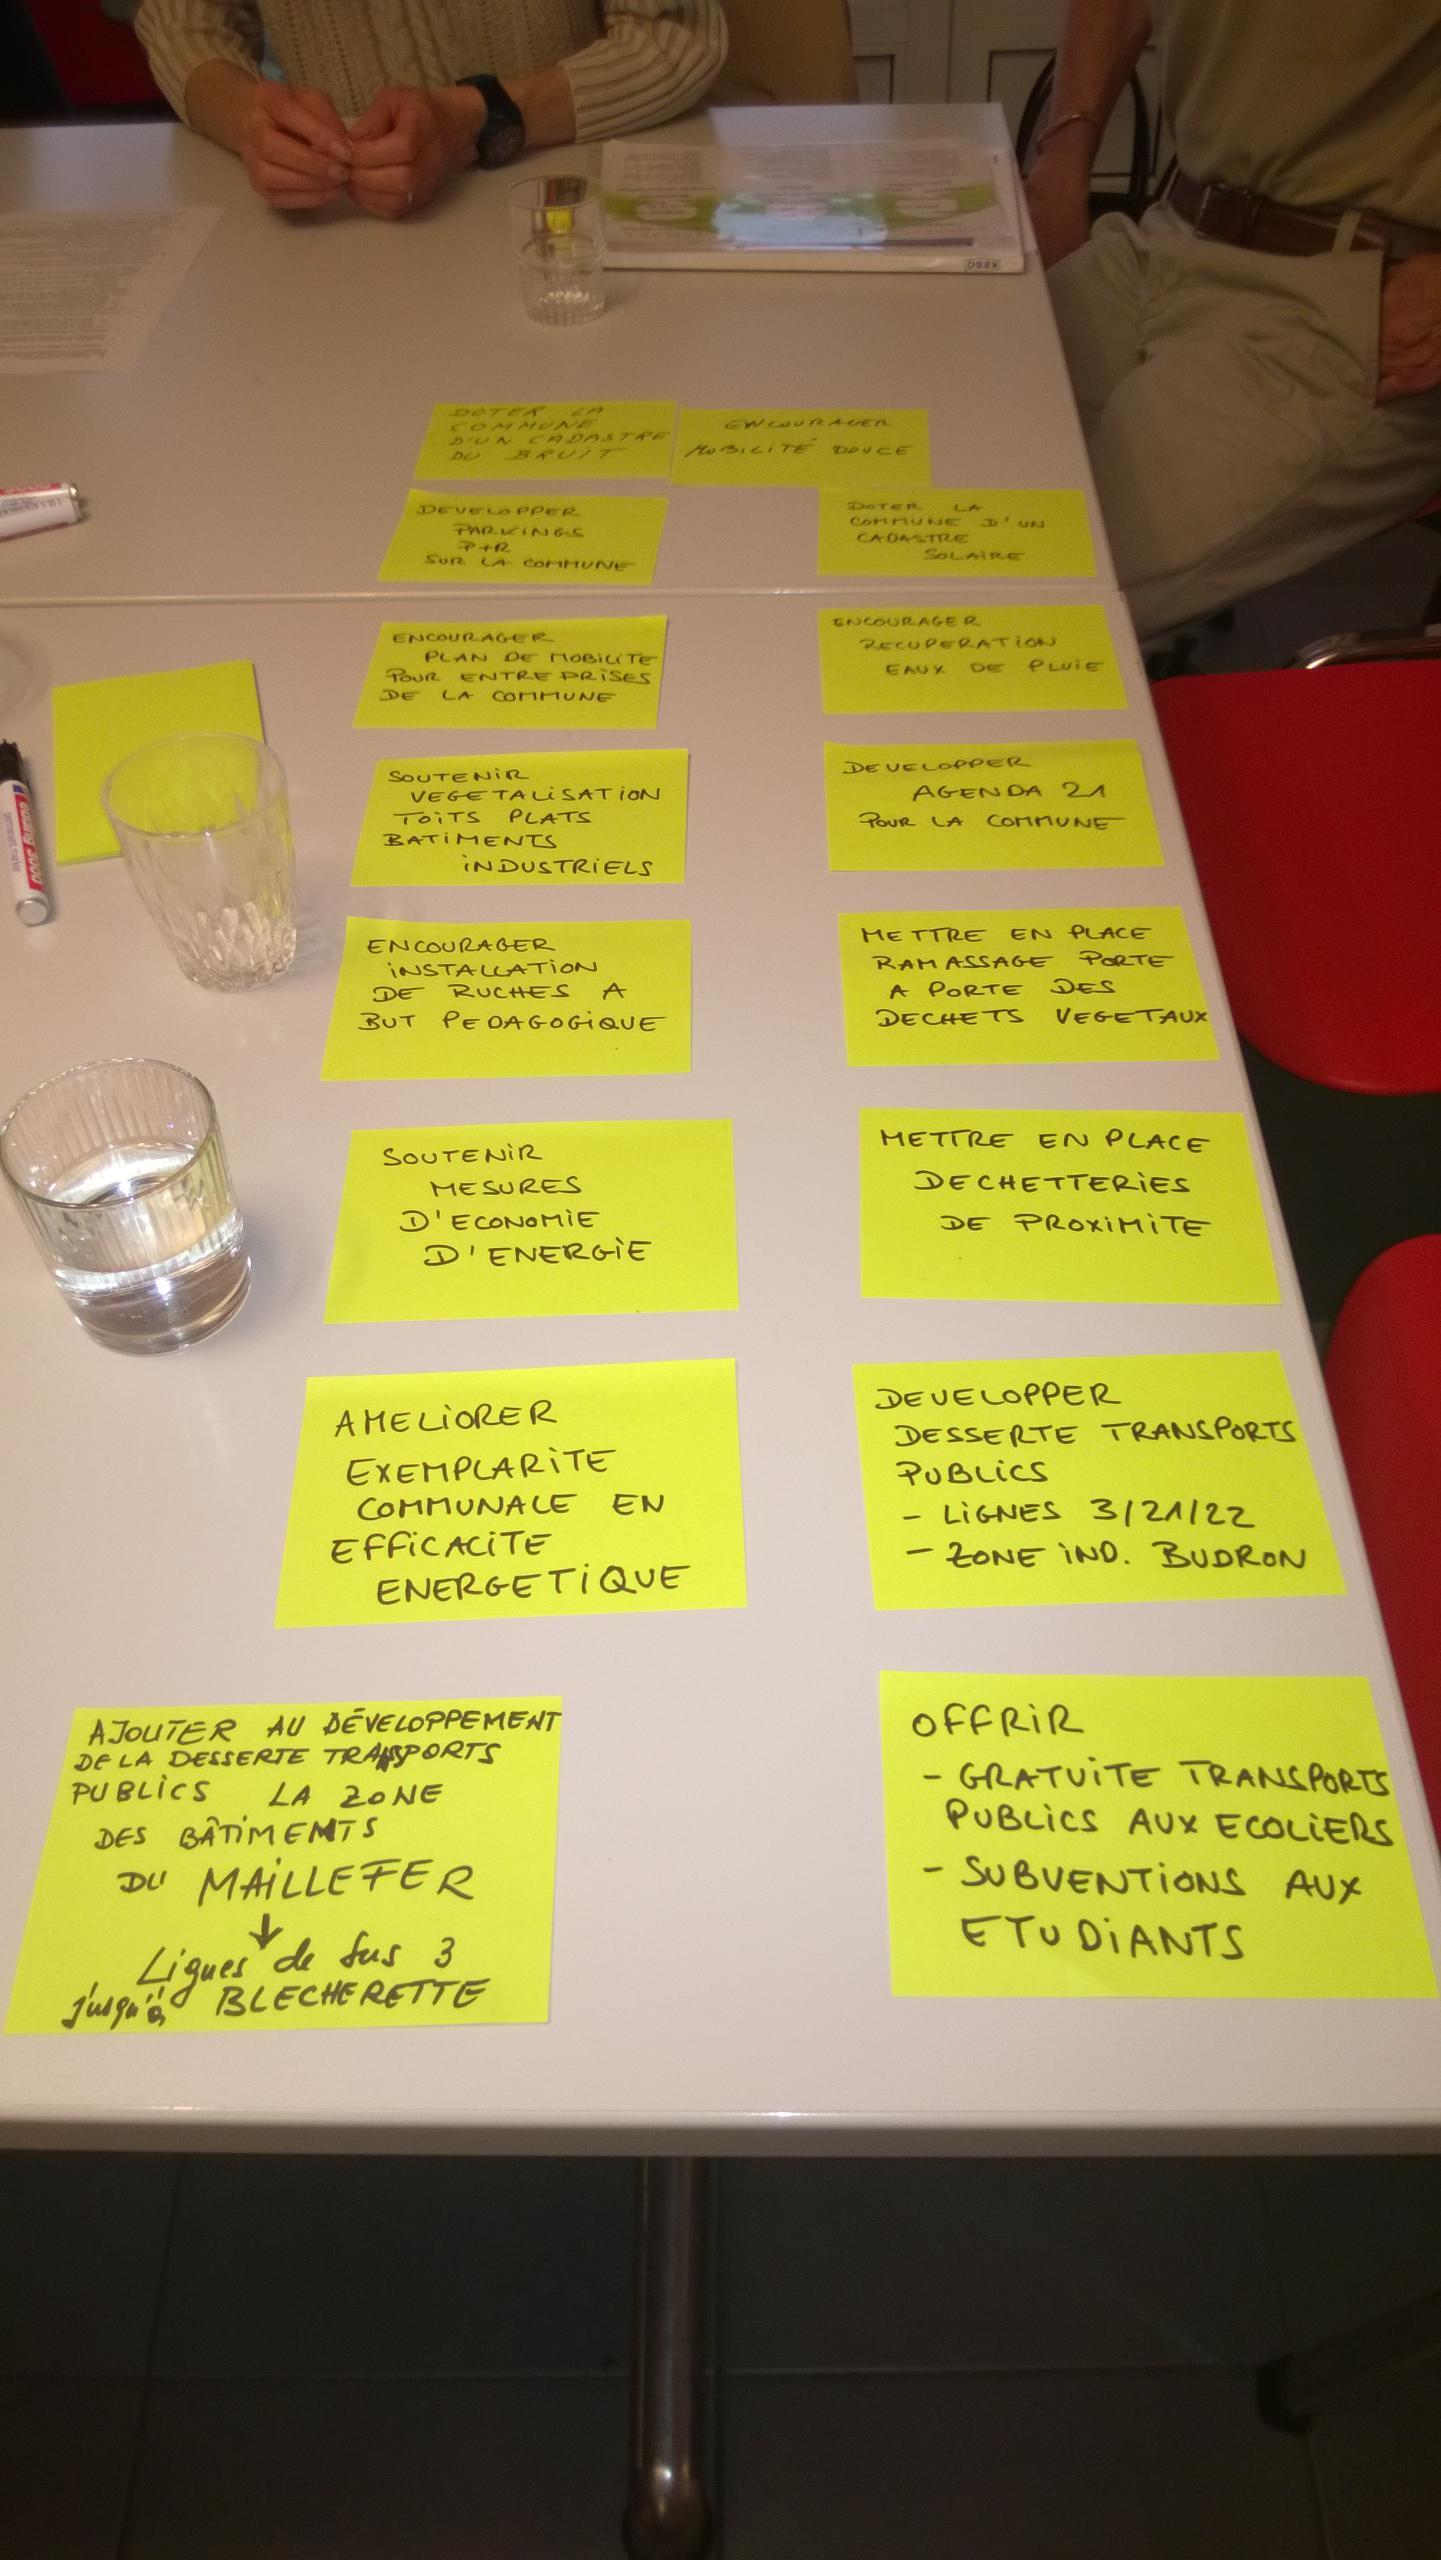 DOTER LA
COMMUNE
D'UN CADASTRE
DU BRUIT
ENCOURAGER
MOBILITÉ DOUCE
DEVELOPPER
PARKINGS
P+R
SUR LA COMMUNE
DOTER LA
COMMUNE D'UN
CADASTRE
SOLAIRE
ENCOURAGER
PLAN DE MOBILITE
POUR ENTREPRISES
DE LA COMMUNE
ENCOURAGER
RECUPERATION
EAUX DE PLUIE
SOUTENIR
VEGETALISATION
TOITS PLATS
BATIMENTS
INDUSTRIELS
DEVELOPPER
AGENDA 21
POUR LA COMMUNE
ENCOURAGER
INSTALLATION
DE RUCHES A
BUT PEDAGOGIQUE
METTRE EN PLACE
RAMASSAGE PORTE
A PORTE DES
DECHETS VEGETAUX
SOUTENIR
MESURES
D'ECONOMIE
D'ENERGIE
METTRE EN PLACE
DECHETTERIES
DE PROXIMITE
AMELIORER
EXEMPLARITE
COMMUNALE EN
EFFICACITE
ENERGETIQUE
DEVELOPPER
DESSERTE TRANSPORTS
PUBLICS
- LIGNES 3/21/22
- ZONE IND. BUDRON
AJOUTER AU DÉVELOPPEMENT
DE LA DESSERTE TRANSPORTS
PUBLICS LA ZONE
DES BÂTIMENTS
DU MAILLEFER
↓
Lignes de bus 3
jusqu'à BLECHERETTE
OFFRIR
- GRATUITE TRANSPORTS
PUBLICS AUX ECOLIERS
- SUBVENTIONS AUX
ETUDIANTS
edding 3000